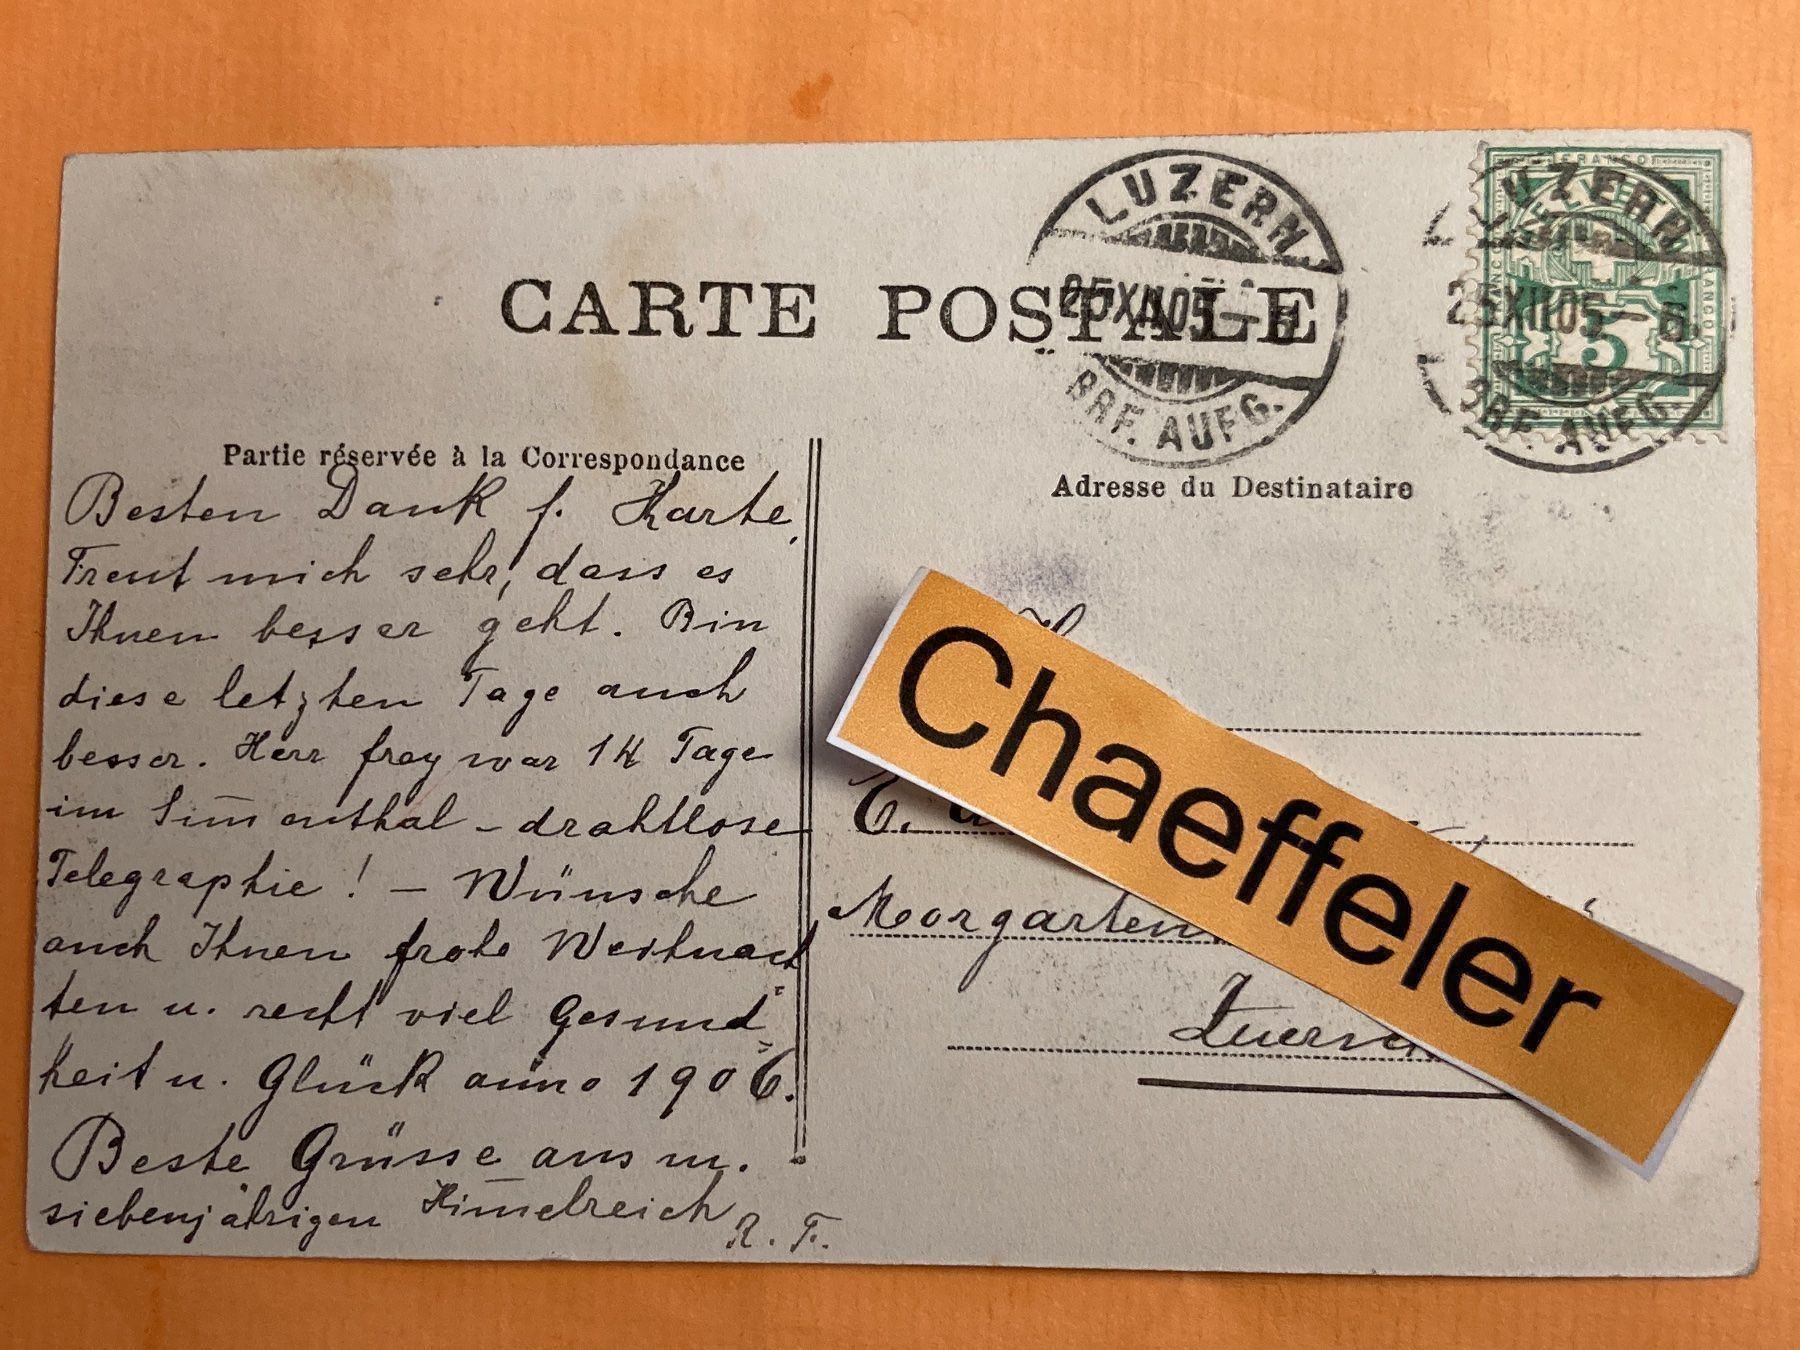 CARTE POSTALE
LUZERN
25.XII.05.-6.
BRF. AUFG.
LUZERN
25.XII.05.-6.
BRF. AUFG.
FRANCO
HELVETIA
FRANCO
5
Partie réservée à la Correspondance
Besten Dank f. Karte,
Freut mich sehr, dass es
Ihnen besser geht. Bin
diese letzten Tage auch
besser. Herr Frey war 14 Tage
im Sim̅enthal – drahtlose
Telegraphie! – Wünsche
auch Ihnen frohe Weihnach
ten u. recht viel Gesund=
heit u. Glück anno 1906.
Beste Grüsse aus m.
siebenjährigen Him̅elreich
R. F.
Adresse du Destinataire
Morgarten
Luzern
Chaeffeler